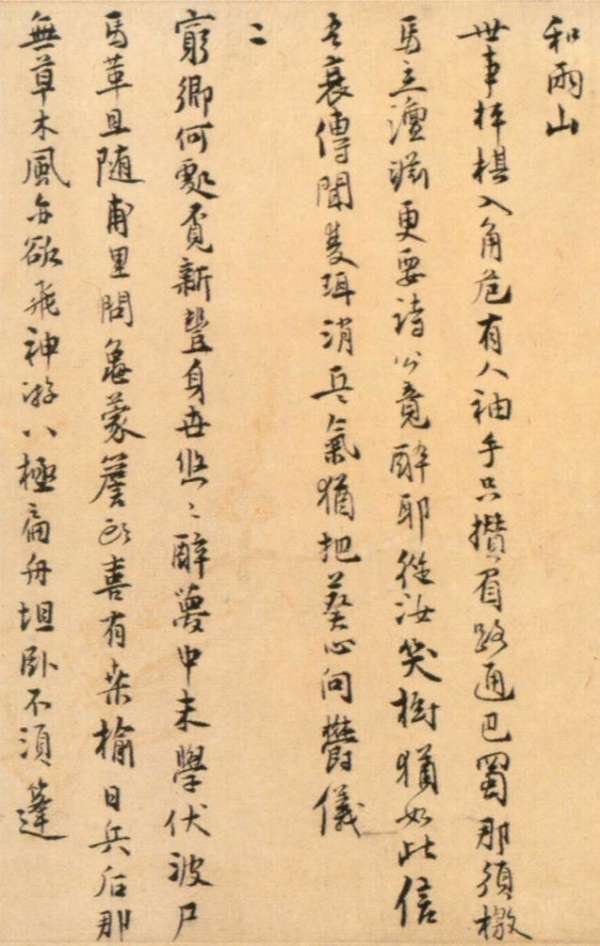 和雨山
世事枰棋入角危有人袖手只攢眉路通巴蜀那須檄
馬立澶淵更要詩公竟醉耶從汝笑樹猶如此信
吾衰傳聞雙珥消兵氣猶把葵心向鬱儀
二
窮鄉何處覓新豐身世悠〻醉夢中未學伏波尸
馬革且隨甫里問龜蒙簷頭喜有桒榆日兵后那
無草木風亦欲飛神游八極扁舟坦卧不須篷